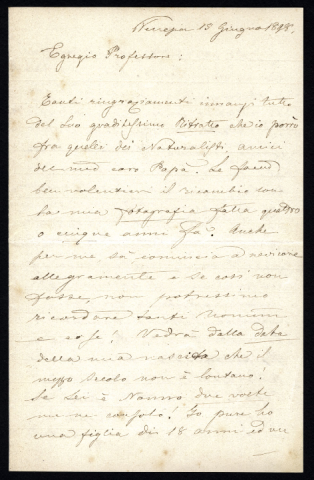 Verona 13 Giugno 1898.
Egregio Professore:
Tanti ringraziamenti innanzi tutto
del Suo graditissimo Ritratto che io porrò
fra quelli dei Naturalisti, amici
del mio caro Papà. Le faccio
ben volentieri il ricambio con
la mia fotografia fatta quattro
o cinque anni fa. Anche
per me si comincia a
allegramente e se così non
fosse, non potressimo
ricordare tanti uomini
e cose! Vedrà dalla data
della mia nascita che il
mezzo secolo non è lontano!
Se Lei è Nonno, due volte
me ne consolo! Io pure ho
una figlia di 18 anni ed un